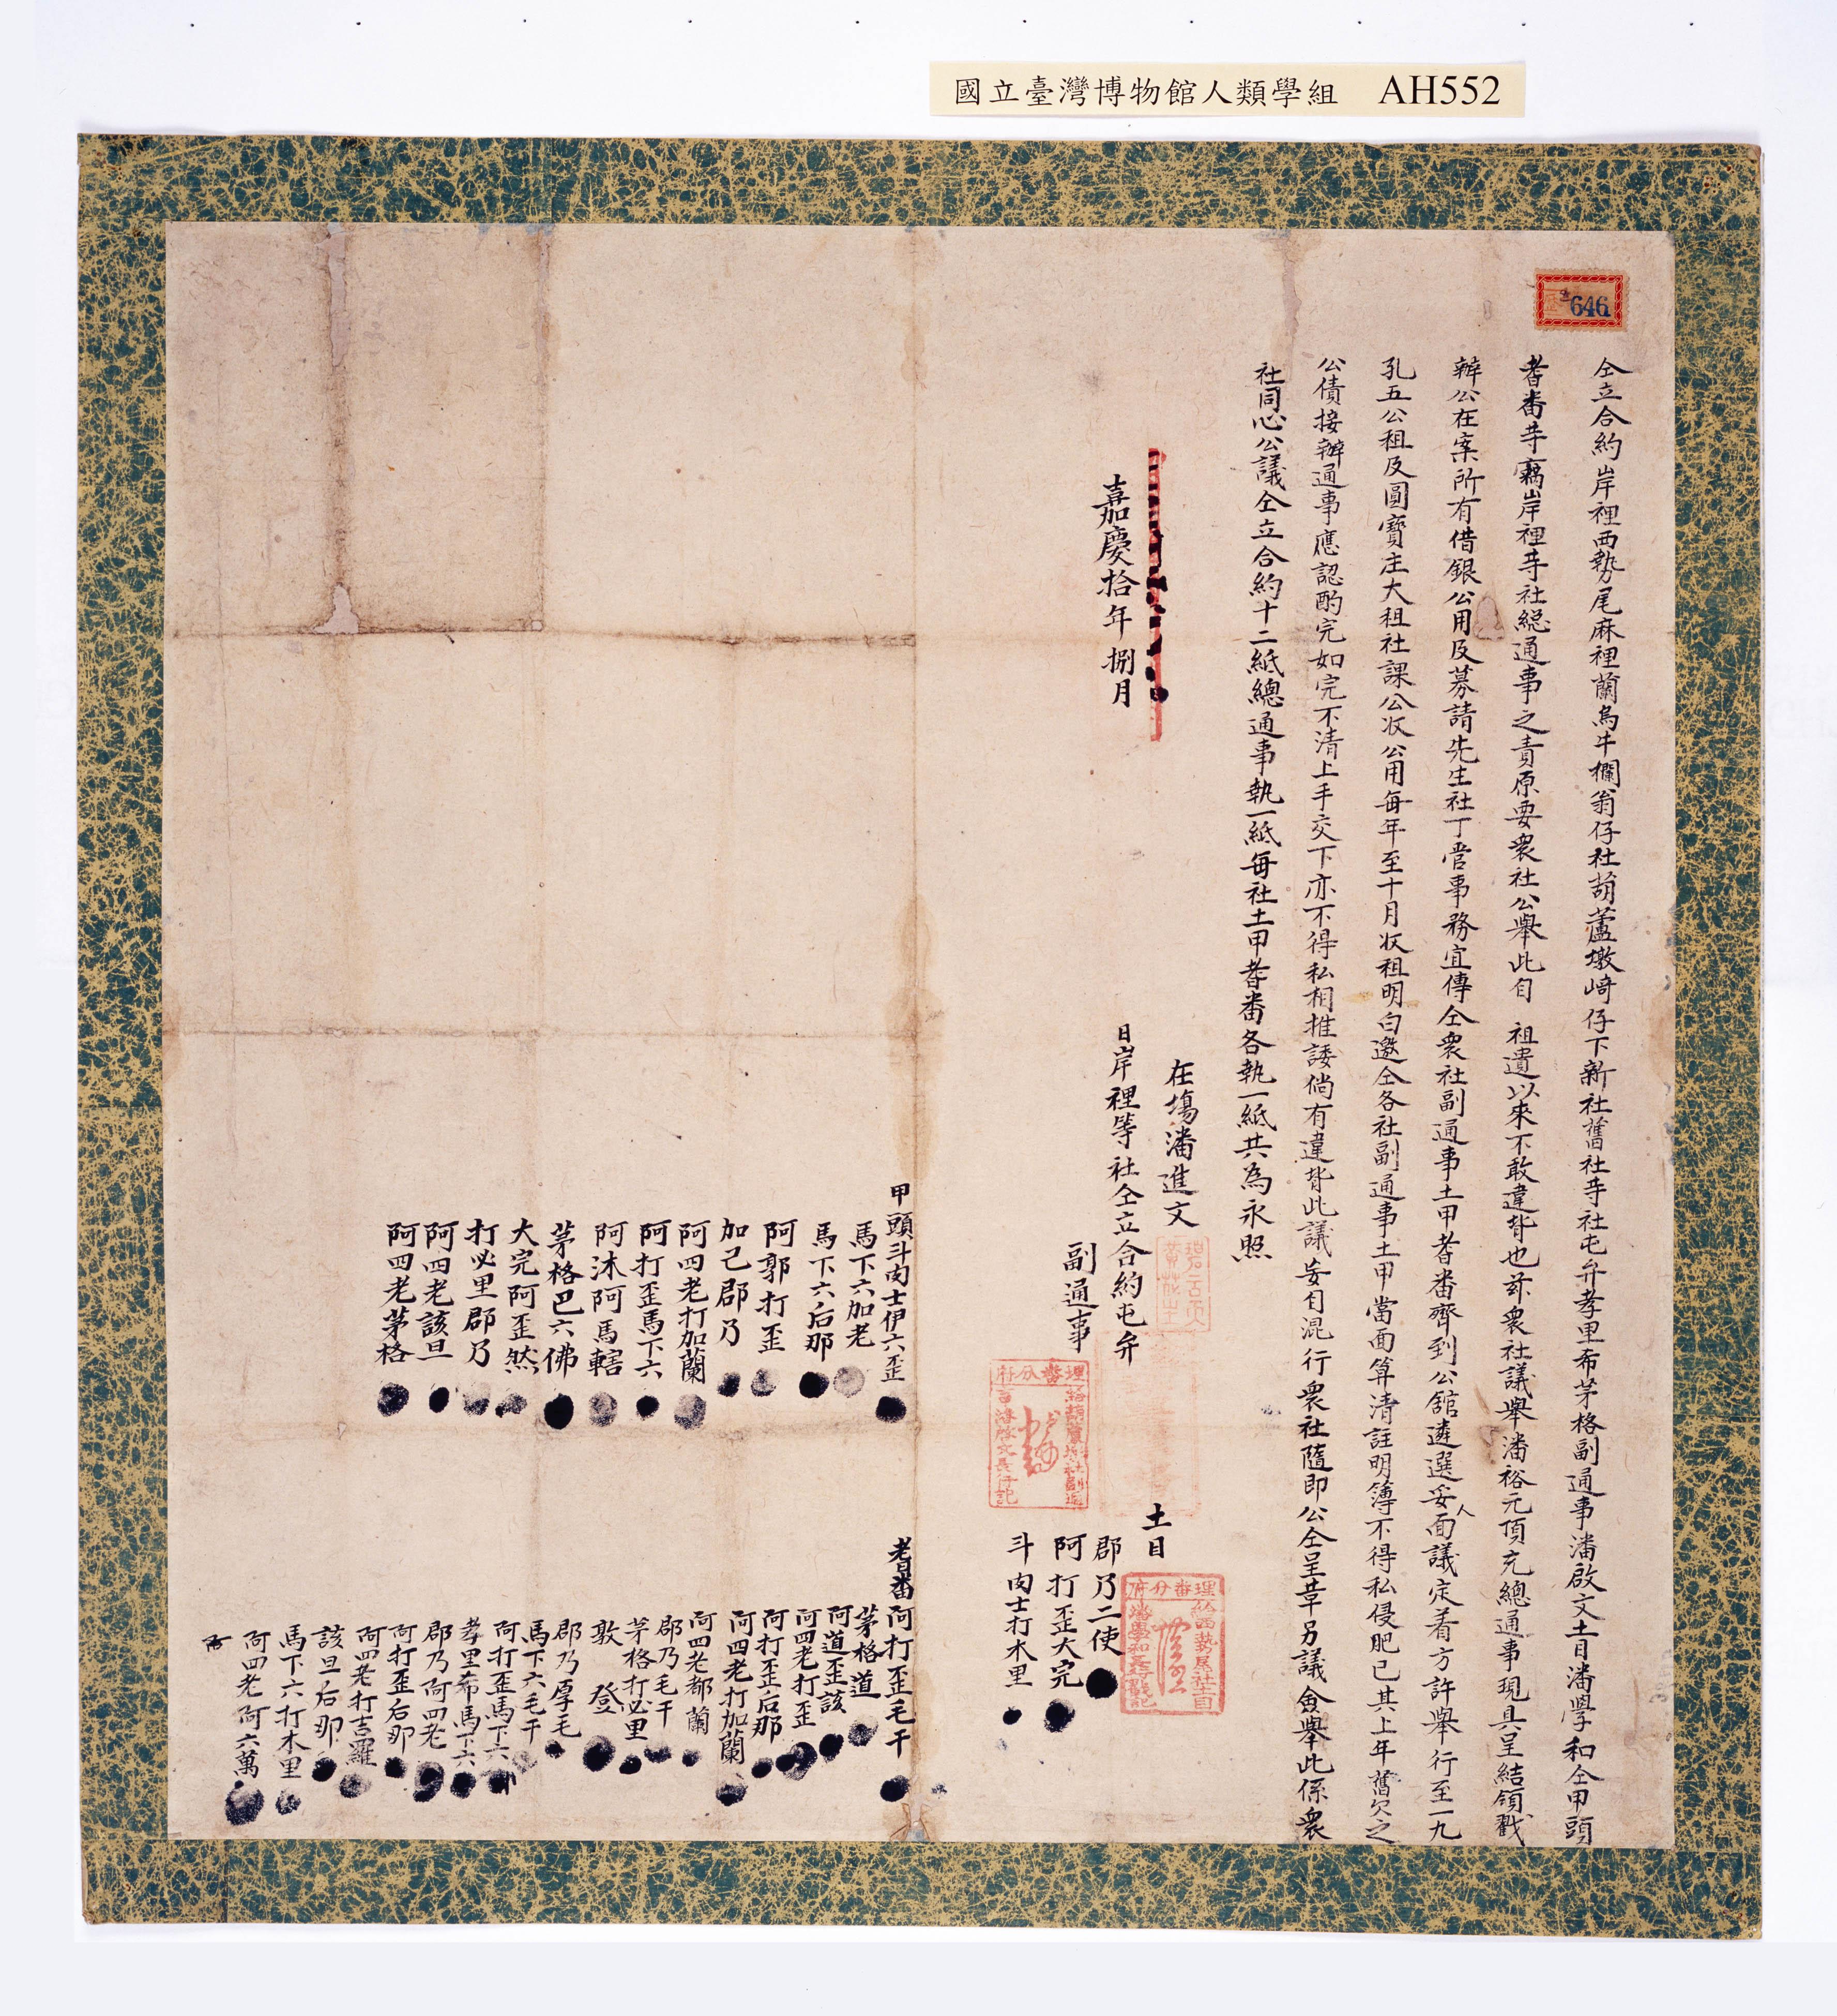 國立臺灣博物館人類學組 AH552
646
仝立合約岸裡西勢尾麻裡蘭烏牛欄翁仔社葫蘆墩崎仔下新社舊社等社屯弁孝里希茅格副通事潘啟文土目潘學和仝甲頭
耆番等竊岸裡等社総通事之責原要衆社公舉此自 祖遺以來不敢違背也茲衆社議舉潘裕元頂充總通事現具呈結領戳
辦公在案所有借銀公用及募請先生社丁管事務宜傳仝衆社副通事土甲耆番齊到公舘遴選妥人面議定着方許舉行至一九
孔五公租及圓寶庄大租社課公收公用每年至十月收租明白邀仝各社副通事土甲當面算清註明簿不得私侵肥己其上年舊欠之
公債接辦通事應認酌完如完不清上手交下亦不得私相推諉倘有違背此議妄自混行衆社隨即公仝呈革另議僉舉此係衆
社同心公議仝立合約十二紙總通事執一紙每社土甲耆番各執一紙共為永照
在塲潘進文
嘉慶拾年捌月 日岸裡等社仝立合約屯弁
副通事
土目
郡乃二使
阿打歪大完
斗肉士打木里
甲頭斗肉士伊六歪
馬下六加老
馬下六后那
阿郭打歪
加己郡乃
阿四老打加蘭
阿打歪馬下六
阿沐阿馬轄
茅格巴六佛
大完阿歪然
打必里郡乃
阿四老該旦
阿四老茅格
耆番阿打歪毛干
茅格道
阿道歪該
阿四老打歪
阿打歪后那
阿四老打加蘭
阿四老都蘭
郡乃毛干
茅格打必里
敦登
郡乃厚毛
馬下六毛干
阿打歪馬下六
孝里希馬下六
郡乃阿四老
阿打歪后那
阿四老打吉羅
該旦后那
馬下六打木里
阿四老阿六萬